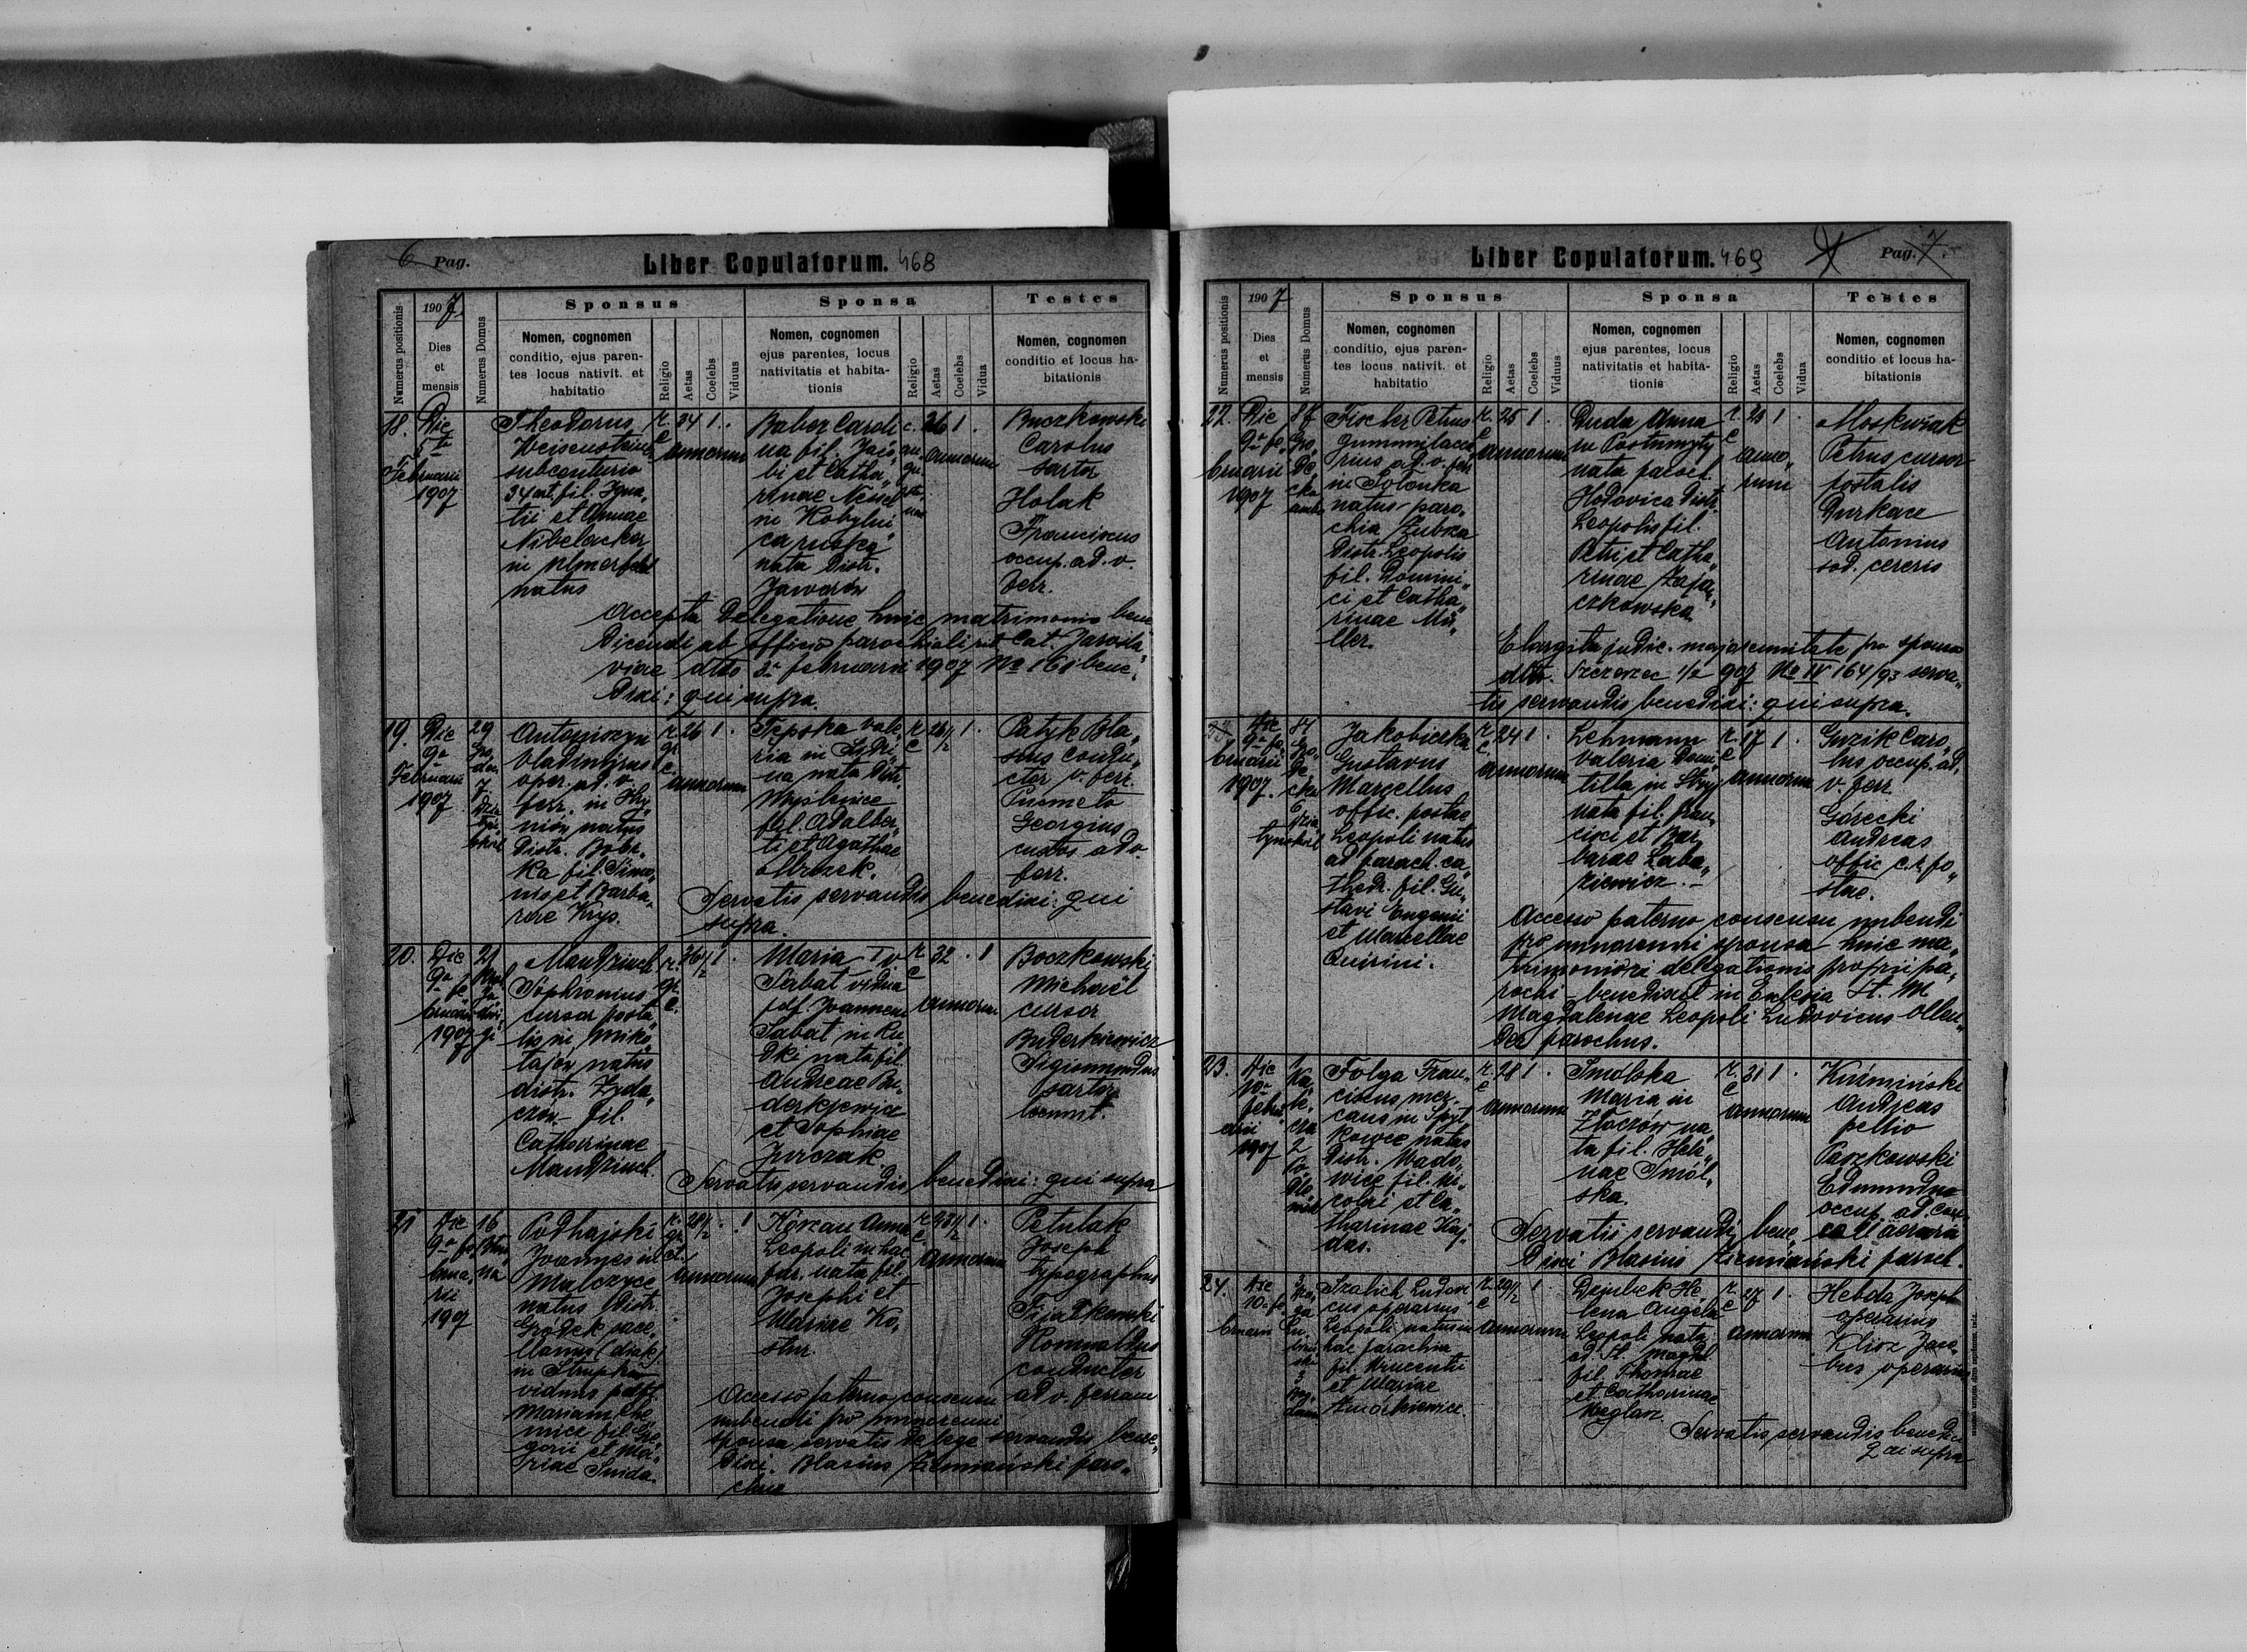 6 Pag.
Liber Copulatorum. 468
Numerus positionis
1907
Dies
et
mensis
Numerus Domus
Sponsus
Nomen, cognomen
conditio, ejus paren-
tes locus nativit. et
habitatio
Religio
Aetas
Coelebs
Viduus
Sponsa
Nomen, cognomen
ejus parentes, locus
nativitatis et habita-
tionis
Religio
Aetas
Coelebs
Vidua
Testes
Nomen, cognomen
conditio et locus ha-
bitationis
18.
Die
5ta
Februarii
1907
Theodorus
subcenturio
fil. Igna„
tii et Annae
Nibelacker
in
natus
r.
c
34 1 .
annorum
Baber Caroli
na fil. Jaco„
bi et Catha„
rinae
in Kobylni
ca ruska
nata Distr.
Jaworów
26 1 .
annorum
Buczkowski
Carolus
sartor
Holak
Franciscus
occup. ad. v.
ferr.
Accepta Delegatione huic matrimonio bene
dicendi ab Officio parochiali Jarosla„
viae dtto 3a februarii 1907 No 161 bene„
dixi: qui supra.
19.
Die
9a
Februarii
1907
29
Antoniszyn
Vladimirus
oper. ad. v.
ferr. in Hry
niów natus
Distr. Bobr„
ka fil. Simeo„
nis et Barba„
rae Krys.
r.
gr.
c.
26 1 .
annorum
Tepska Vale„
ria in
na nata Distr.
Myślenice
fil. Adalber„
ti et Agathae
Mrozek.
r
c
26 1/2 1 .
Patyk Bla„
sius condu„
ctor v. ferr.
Georgius
custos ad v.
ferr.
Servatis servandis benedixi: qui
supra.
20.
Die
9a fe„
bruarii
1907
21
Mandziuch
Sophronius
cursor posta„
lis in Miko„
łajów natus
distr. Żyda„
czów fil.
Catharinae
Mandziuch
r.
gr.
c.
36 1/2 1 .
Maria I v
Sabat vidua
pdf. Joannem
Sabat in Ru„
dki nata fil.
Andreae Bu„
derkiewicz
et Sophiae
Jurczak.
r
c
32 . 1
annorum
Boczkowski
Michael
cursor
Buderkiewicz
Sigismundus
sartor
Servatis servandis benedixi: qui supra
21
Die
9a fe„
brua„
rii
1907
16
Podhajski
Joannes in
Malczyce
natus Distr.
Gródek
in
viduus pdf.
Mariam
fil. Gre„
gorii et Ma„
riae Snida.
r.
gr.
ct.
28 1/2 . 1
annorum
Anna
Leopoli in hac
par. nata fil.
Josephi et
Mariae Ko„
r.
c.
23 1/2 1 .
annorum
Petulak
Joseph
typographus
Fijałkowski
Romualdus
conductor
ad v. ferream
Accesso paterno consensu
nubendi pro minorenni
sponsa servatis de lege servandis bene„
dixi. Blasius Ziemiański paro„
chus
Liber Copulatorum. 469
Pag. 7.
Numerus positionis
1907
Dies
et
mensis
Numerus Domus
Sponsus
Nomen, cognomen
conditio, ejus paren-
tes locus nativit. et
habitatio
Religio
Aetas
Coelebs
Viduus
Sponsa
Nomen, cognomen
ejus parentes, locus
nativitatis et habita-
tionis
Religio
Aetas
Coelebs
Vidua
Testes
Nomen, cognomen
conditio et locus ha-
bitationis
22.
Die
9a fe„
bruarii
1907
Gro„
de„
cka
Fischer Petrus
ad. v. ferr.
in Sołonka
natus paro„
chia Zubrza
Distr. Leopolis
fil. Domini„
ci et Catha„
rinae Mü„
ller.
r.
c
25 1 .
annorum
Duda Anna
in Postumyty
nata paroch.
Hodovica Distr.
Leopolis fil.
Petri et Catha„
rinae Zają„
czkowska
r.
c
21 1 .
anno„
rum
Moskwiak
Petrus cursor
postalis
Durkacz
Antonius
sod. cereris
Elargita judic. majorennitate pro sponso
dtto. Szczerzec 1/2 907 No IV 164/93 serva„
tis servandis benedixi: qui supra.
Die
9a fe„
bruarii
1907.
Gro
de
cka
Jakobiczka
Gustavus
Marcellus
offic. postae
Leopoli natus
ad paroch. ca„
thedr. fil. Gu„
stavi Eugenii
et Marcellae
Quirini.
r.
c.
24 1 .
annorum
Lehmann
Valeria Domi„
tilla in Stryj
nata fil. Fran„
cisci et Bar„
barae Laba„
ziewicz. –
r.
c
17 1 .
annorum
Guzik Caro„
lus occup. ad.
v. ferr.
Górecki
Andreas
offic. c. r. po„
stae.
Accesso paterno consensu nubendi
pro minorenni sponsa huic ma„
trimonio vi delegationis proprii pa„
rochi – benedixit in Ecclesia St. M.
Magdalenae Leopoli Ludovicus Ollen„
der parochus.
23.
Die
10a
febru„
arii
1907
Folga Fran„
ciscus mer„
cans in Spyt„
kowice natus
Distr. Wado„
wice fil. Ni„
colai et Ca„
tharinae Kaj„
das.
r.
c
28 1 .
annorum
Smólska
Maria in
Złoczów na„
ta fil. Hele„
nae Smól„
ska.
r.
c
31 1 .
annorum
Kuźmiński
Andreas
pellio
Paszkowski
Edmundus
occup. ad.
Servatis servandis bene„
dixi Blasius Ziemiański paroch.
24.
Die
10a fe„
bruarii
Szalich Ludovi
cus operarius
Leopoli natus in
hac parochia
fil. Vincentii
et Mariae
r.
c
29 1/2 1
annorum
Dziubek He„
lena Angela
Leopoli nata
ad St. Magd.
fil. Thomae
et Catharinae
Węglarz.
r.
c
27 1 .
annorum
Hebda Joseph
operarius
Jaco„
bus operarius
Servatis servandis benedixi
qui supra